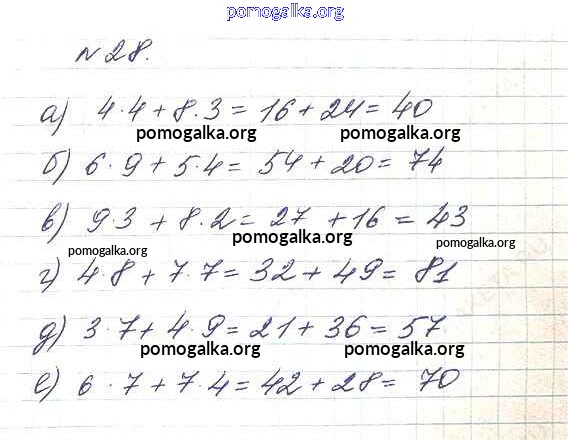 pomogalka.org
№28.
а) 4·4+8·3=16+24=40
pomogalka.org pomogalka.org
б) 6·9+5·4=54+20=74
в) 9·3+8·2=27+16=43
pomogalka.org pomogalka.org pomogalka.org
г) 4·8+7·7=32+49=81
д) 3·7+4·9=21+36=57
pomogalka.org pomogalka.org
е) 6·7+7·4=42+28=70